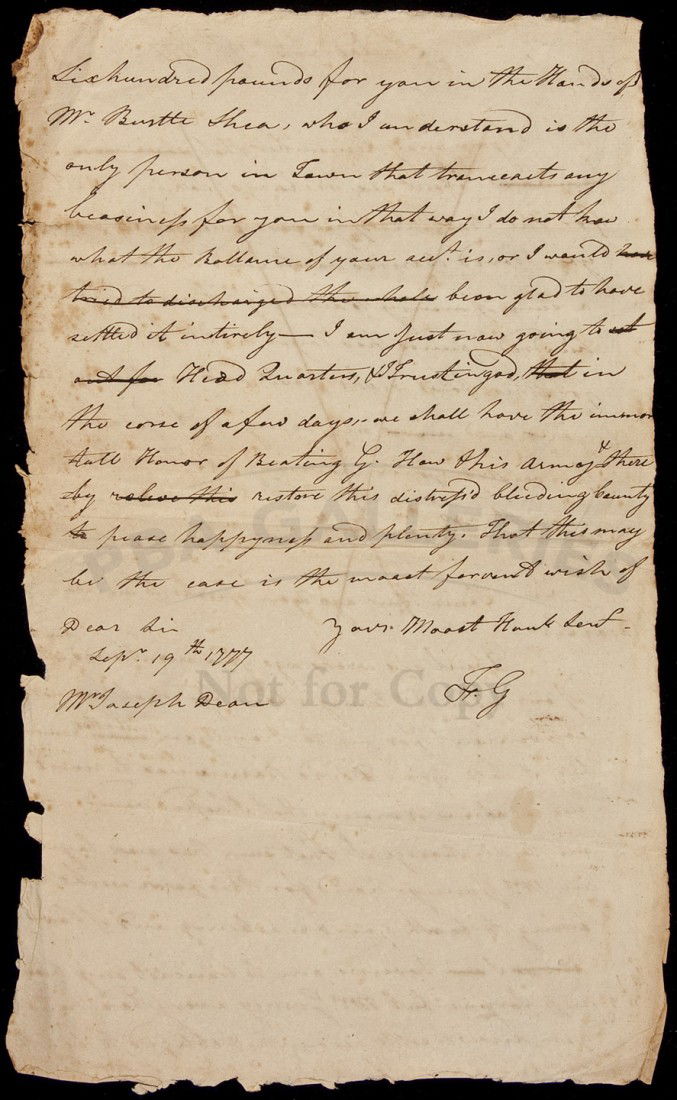 Six hundred pounds for you in the Hands of
Mr. Burtte Shea, who I understand is the
only person in Town that transeacts any
beasiness for you in that way I do not know
what the Ballance of your acct. is, or I would have
tried to discharged the whole been glad to have
settled it intirely— I am Just now going to set
out for Head Quarters, & I Trust in god, that in
the corse of a few days, we shall have the immor
tall Honor of Beating G. How & his Army & there
by releve this restore this distress'd bleeding County
to pease happyness and plenty. That this may
be the case is the moast fervent wish of
Dear Sir Your Moast Hunb Servt.
Sepr. 19th 1777
Mr Joseph Dean F. G
PBA GALLERIES
Not for Copy